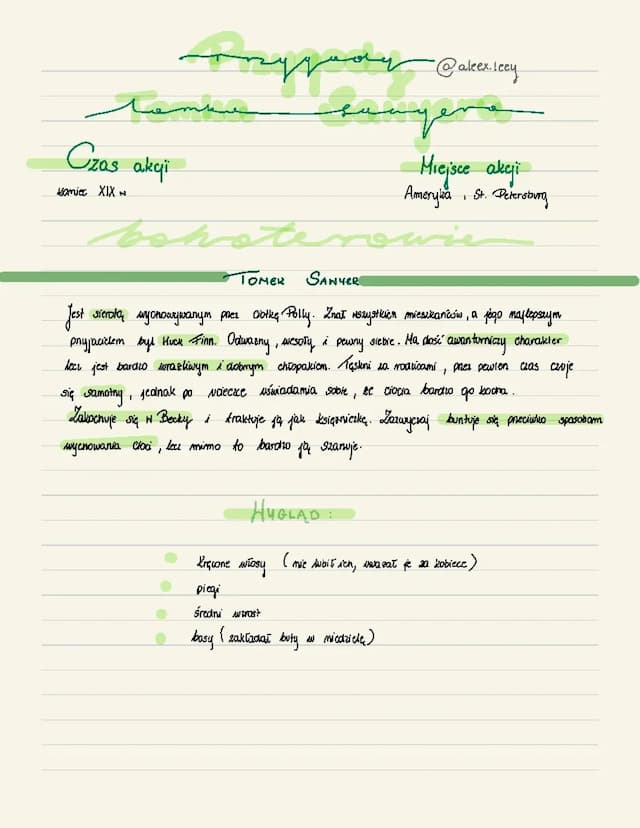 Przygody
@aleex.leey
Tomka Sawyera
Czas akcji
Miejsce akcji
koniec XIX w
Ameryka, St. Petersburg
bohaterowie
TOMEK SAWYER
Jest sierotą wychowywanym przez ciotkę Polly. Znał wszystkich mieszkańców, a jego najlepszym
przyjacielem był Huck Finn. Odważny, wesoły i pewny siebie. Ma dość awanturniczy charakter
lecz jest bardzo wrażliwym i dobrym chłopakiem. Tęskni za rodzicami, przez pewien czas czuje
się samotny, jednak po ucieczce uświadamia sobie, że ciocia bardzo go kocha.
Zakochuje się w Becky i traktuje ją jak księżniczkę. Zazwyczaj buntuje się przeciwko sposobom
wychowania cioci, lecz mimo to bardzo ją szanuje.
WYGLĄD:
kręcone włosy (nie lubił ich, uważał je za kobiece)
piegi
średni wzrost
bosy (zakładał buty w niedzielę)